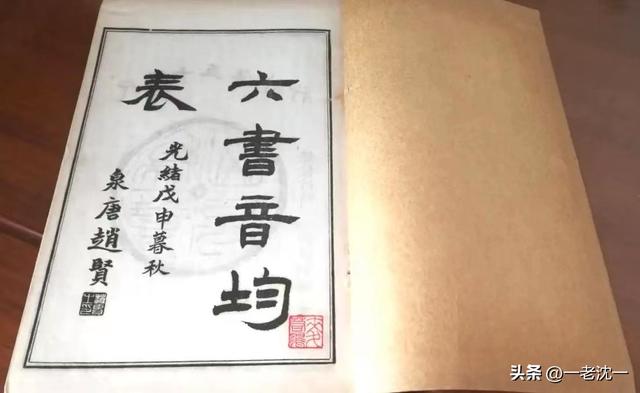 六書音均
表
光緒戊申暮秋
泉唐趙賢
头条 @一老沈一